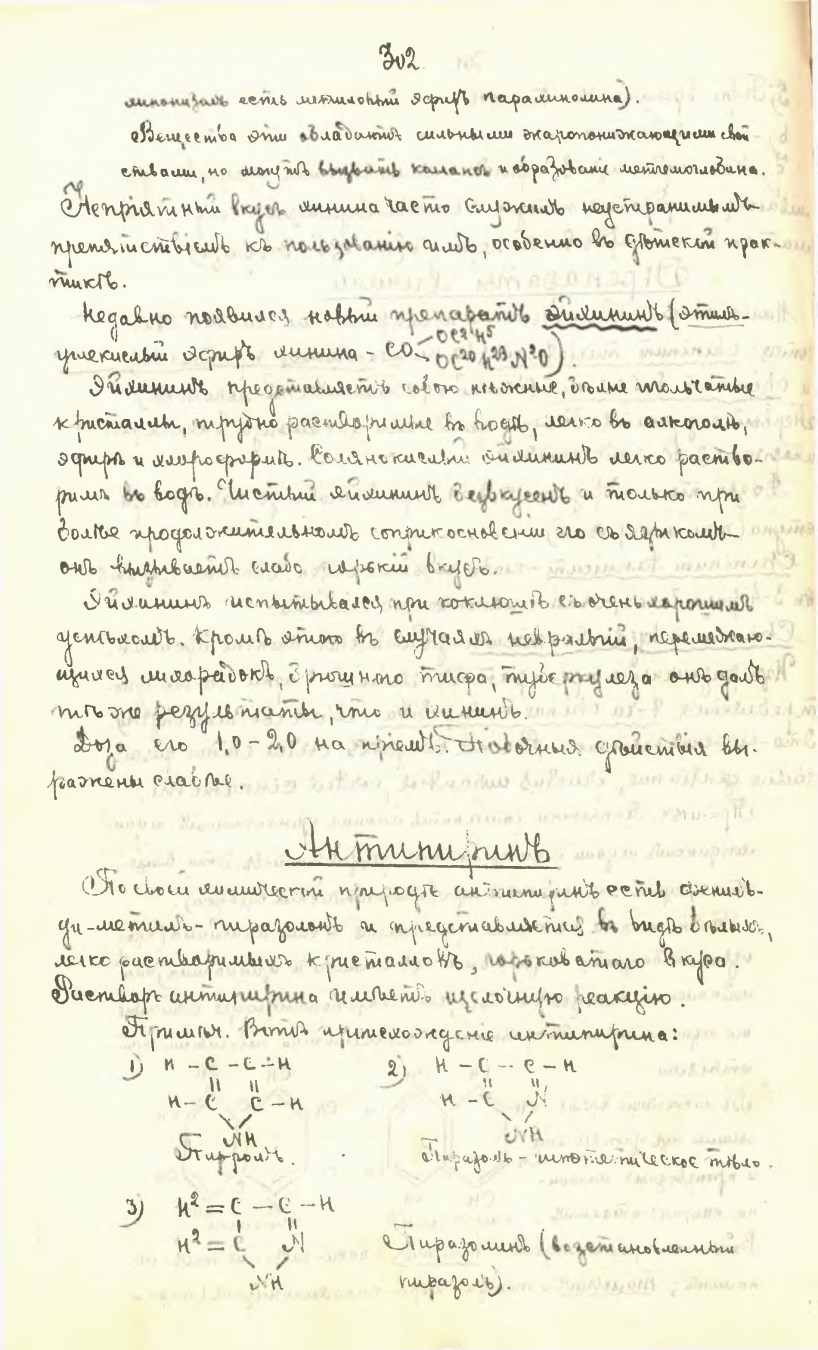 302
есть метиловый эфиръ парахинолина).
Вещества эти обладаютъ сильными жаропонижающими свой
ствами, но могутъ вызвать коллапсъ и образованіе метгемоглобина.
Непріятный вкусъ хинина часто служилъ неустранимымъ
препятствіемъ къ пользованію имъ, особенно въ дѣтской прак-
тикѣ.
Недавно появился новый препаратъ эйхининъ (этилъ-
углекислый эфиръ хинина - CO OC²H⁵
OC²⁰H²³N²O).
Эйхининъ представляетъ собою нѣжные, бѣлые игольчатые
кристаллы, трудно растворимые въ водѣ, легко въ алкоголѣ,
эфирѣ и хлороформѣ. Солянокислый эйхининъ легко раство-
римъ въ водѣ. Чистый эйхининъ безвкусенъ и только при
болѣе продолжительномъ соприкосновеніи его съ языкомъ
онъ вызываетъ слабо горькій вкусъ.
Эйхининъ испытывался при коклюшѣ съ очень хорошимъ
успѣхомъ. Кромѣ этого въ случаяхъ невралгій, перемежаю-
щихся лихорадокъ, брюшного тифа, туберкулеза онъ далъ
тѣ же результаты, что и хининъ.
Доза его 1,0 - 2,0 на пріемъ. Побочныя дѣйствія вы-
ражены слабѣе.
Антипиринъ
По своей химической природѣ антипиринъ есть фенилъ-
ди-метилъ-пиразолонъ и представляется въ видѣ бѣлыхъ,
легко растворимыхъ кристалловъ, горьковатаго вкуса.
Растворъ антипирина имѣетъ щелочную реакцію.
Примѣч. Вотъ происхожденіе антипирина:
1) H - C - C - H 2) H - C - C - H
H - C C - H H - C N
NH NH
Пирролъ. Пиразолъ - гипотетическое тѣло.
3) H² = C - C - H
H² = C N Пиразолинъ (возстановленный
NH пиразолъ).